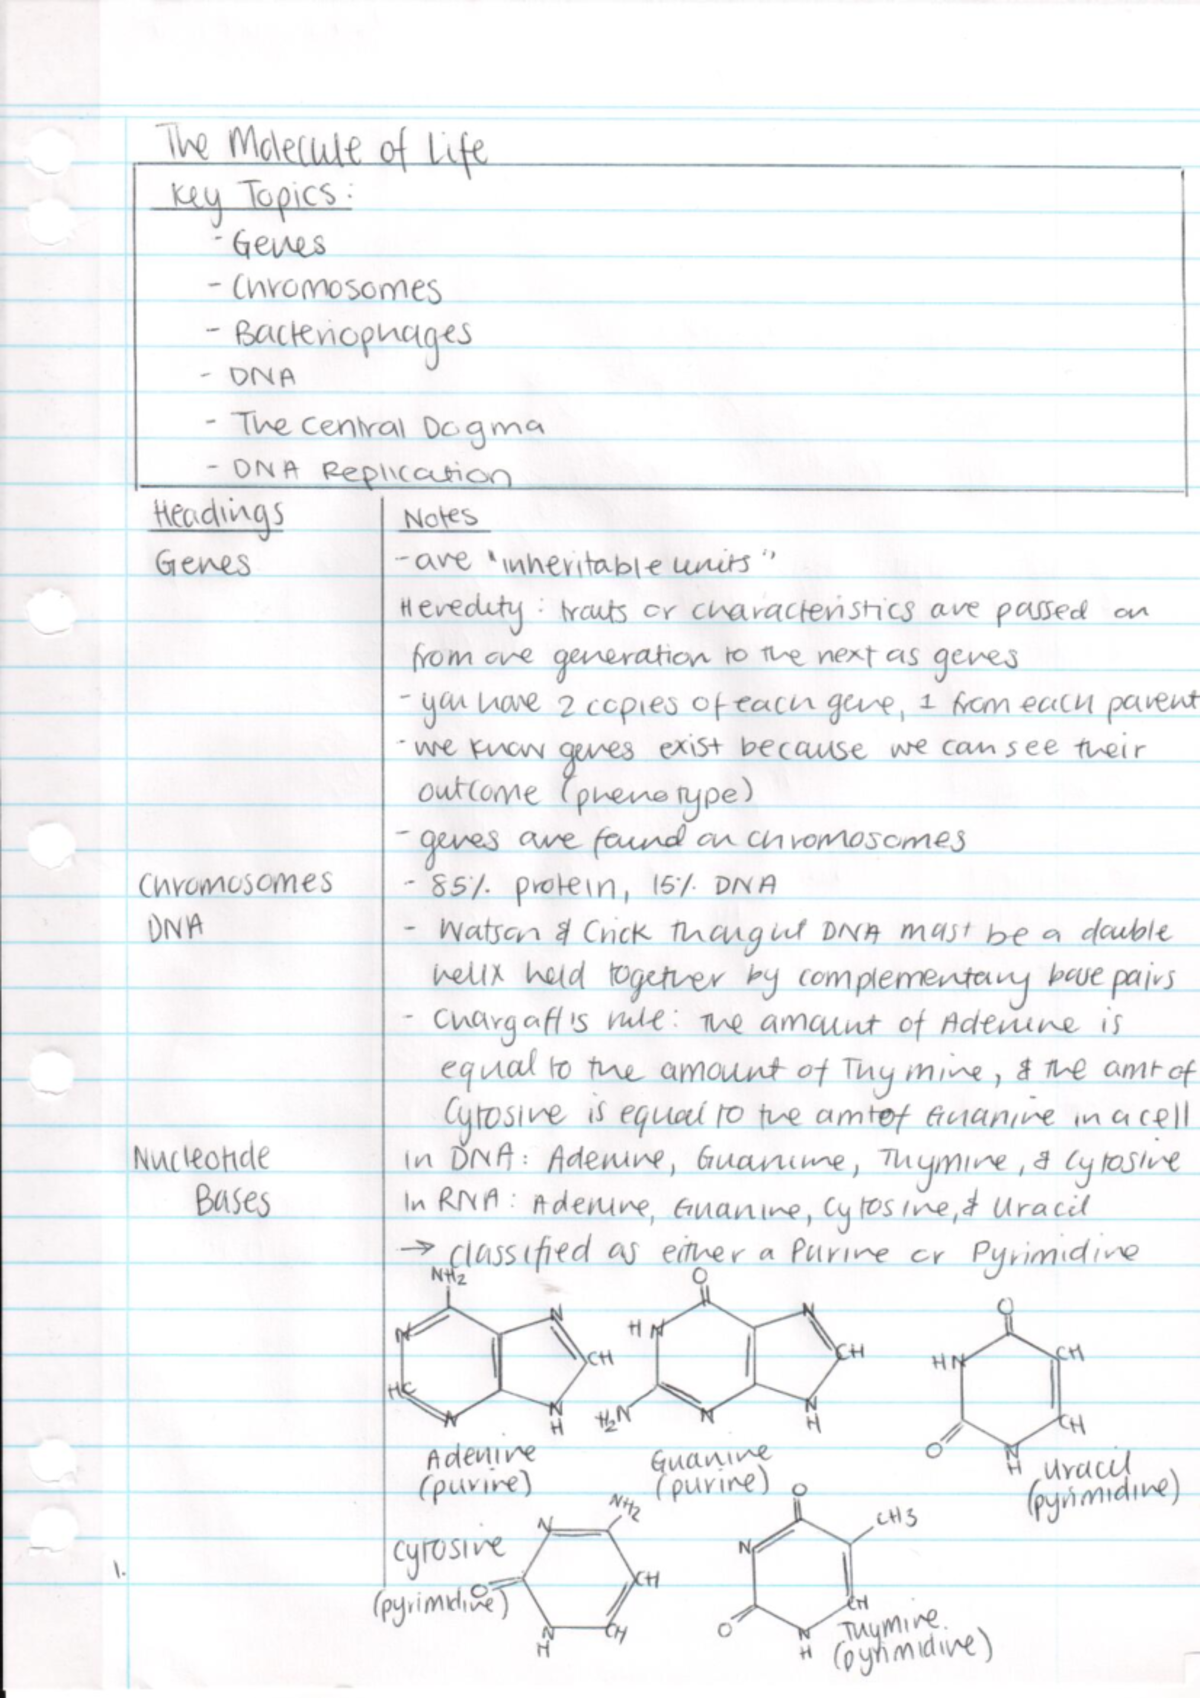 The Molecule of Life
Key Topics:
- Genes
- Chromosomes
- Bacteriophages
- DNA
- The Central Dogma
- DNA Replication
Headings Notes
Genes - are "inheritable units"
Heredity: traits or characteristics are passed on
from one generation to the next as genes
- you have 2 copies of each gene, 1 from each parent
- we know genes exist because we can see their
outcome (phenotype)
- genes are found on chromosomes
Chromosomes - 85% protein, 15% DNA
DNA - Watson & Crick thought DNA must be a double
helix held together by complementary base pairs
- Chargaff's rule: the amount of Adenine is
equal to the amount of Thymine, & the amt of
Cytosine is equal to the amt of Guanine in a cell
Nucleotide In DNA: Adenine, Guanine, Thymine, & Cytosine
Bases In RNA: Adenine, Guanine, Cytosine, & Uracil
→ classified as either a Purine or Pyrimidine
NH2 O O
N N H N N HN CH
CH CH
HC N N H H2N N N H O N H CH
Adenine (purine)
Guanine (purine)
Uracil (pyrimidine)
N NH2 O CH3
Cytosine (pyrimidine) O CH N
N H CH O N H CH
Thymine (pyrimidine)
1.